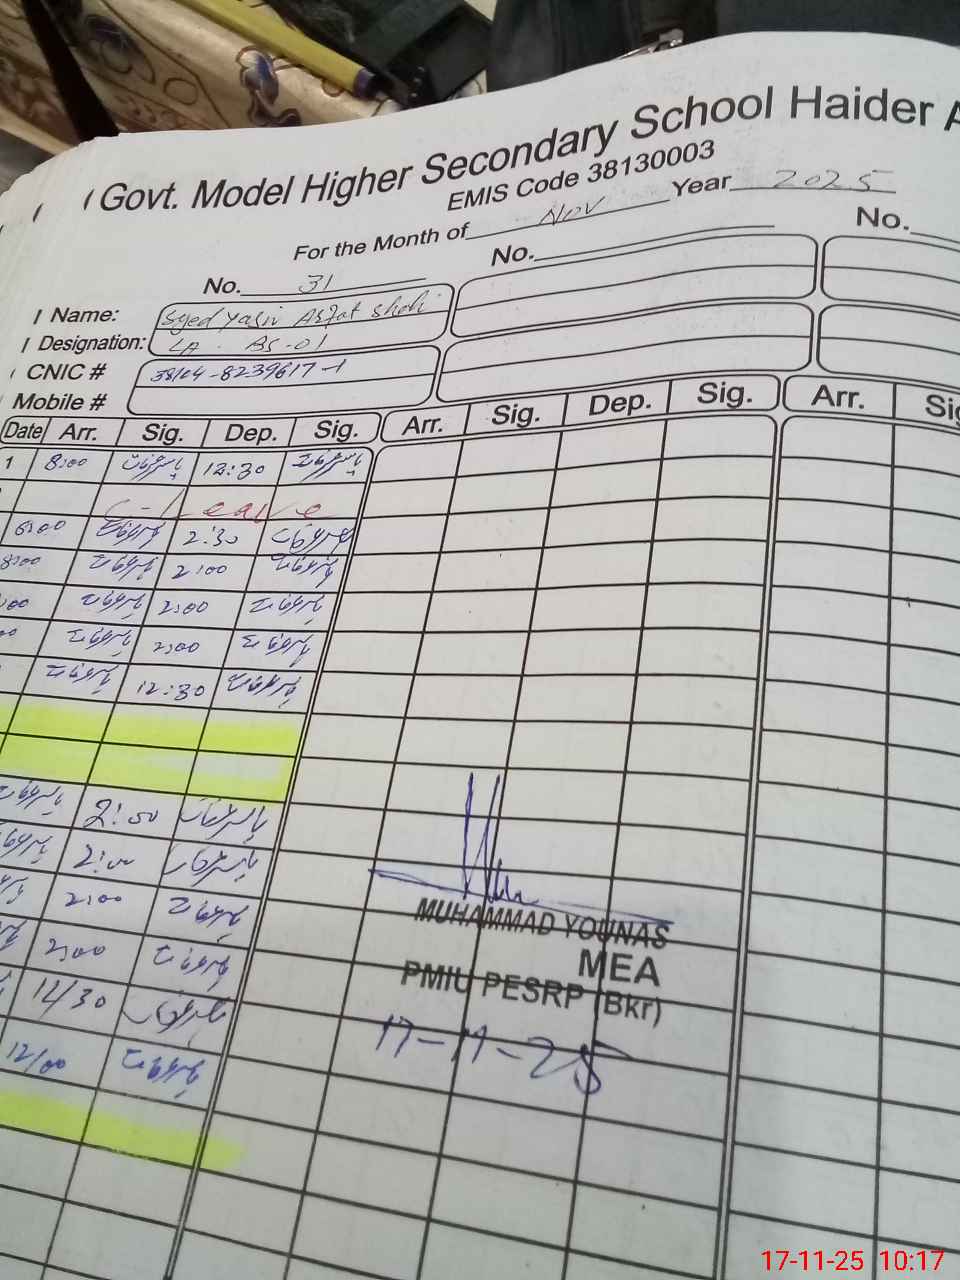 Govt. Model Higher Secondary School Haider A
EMIS Code 38130003
For the Month of Nov Year 2025
No. 31 No. No.
Name: Syed Yasir Arfat Shah
Designation: LA BS-01
CNIC # 38104-8239617-1
Mobile #
Date Arr. Sig. Dep. Sig. Arr. Sig. Dep. Sig. Arr. Sig
1 8:00 یاسرعرفات 12:30 یاسرعرفات
C-Leave
8:00 یاسرعرفات 2:30 یاسرعرفات
8:00 یاسرعرفات 2:00 یاسرعرفات
:00 یاسرعرفات 2:00 یاسرعرفات
00 یاسرعرفات 2:00 یاسرعرفات
یاسرعرفات 12:30 یاسرعرفات
یاسرعرفات 2:00 یاسرعرفات
یاسرعرفات 2:00 یاسرعرفات
2:00 یاسرعرفات
2:00 یاسرعرفات
12/30 یاسرعرفات
12/00 یاسرعرفات
MUHAMMAD YOUNAS
MEA
PMIU PESRP (Bkr)
17-11-25
17-11-25 10:17